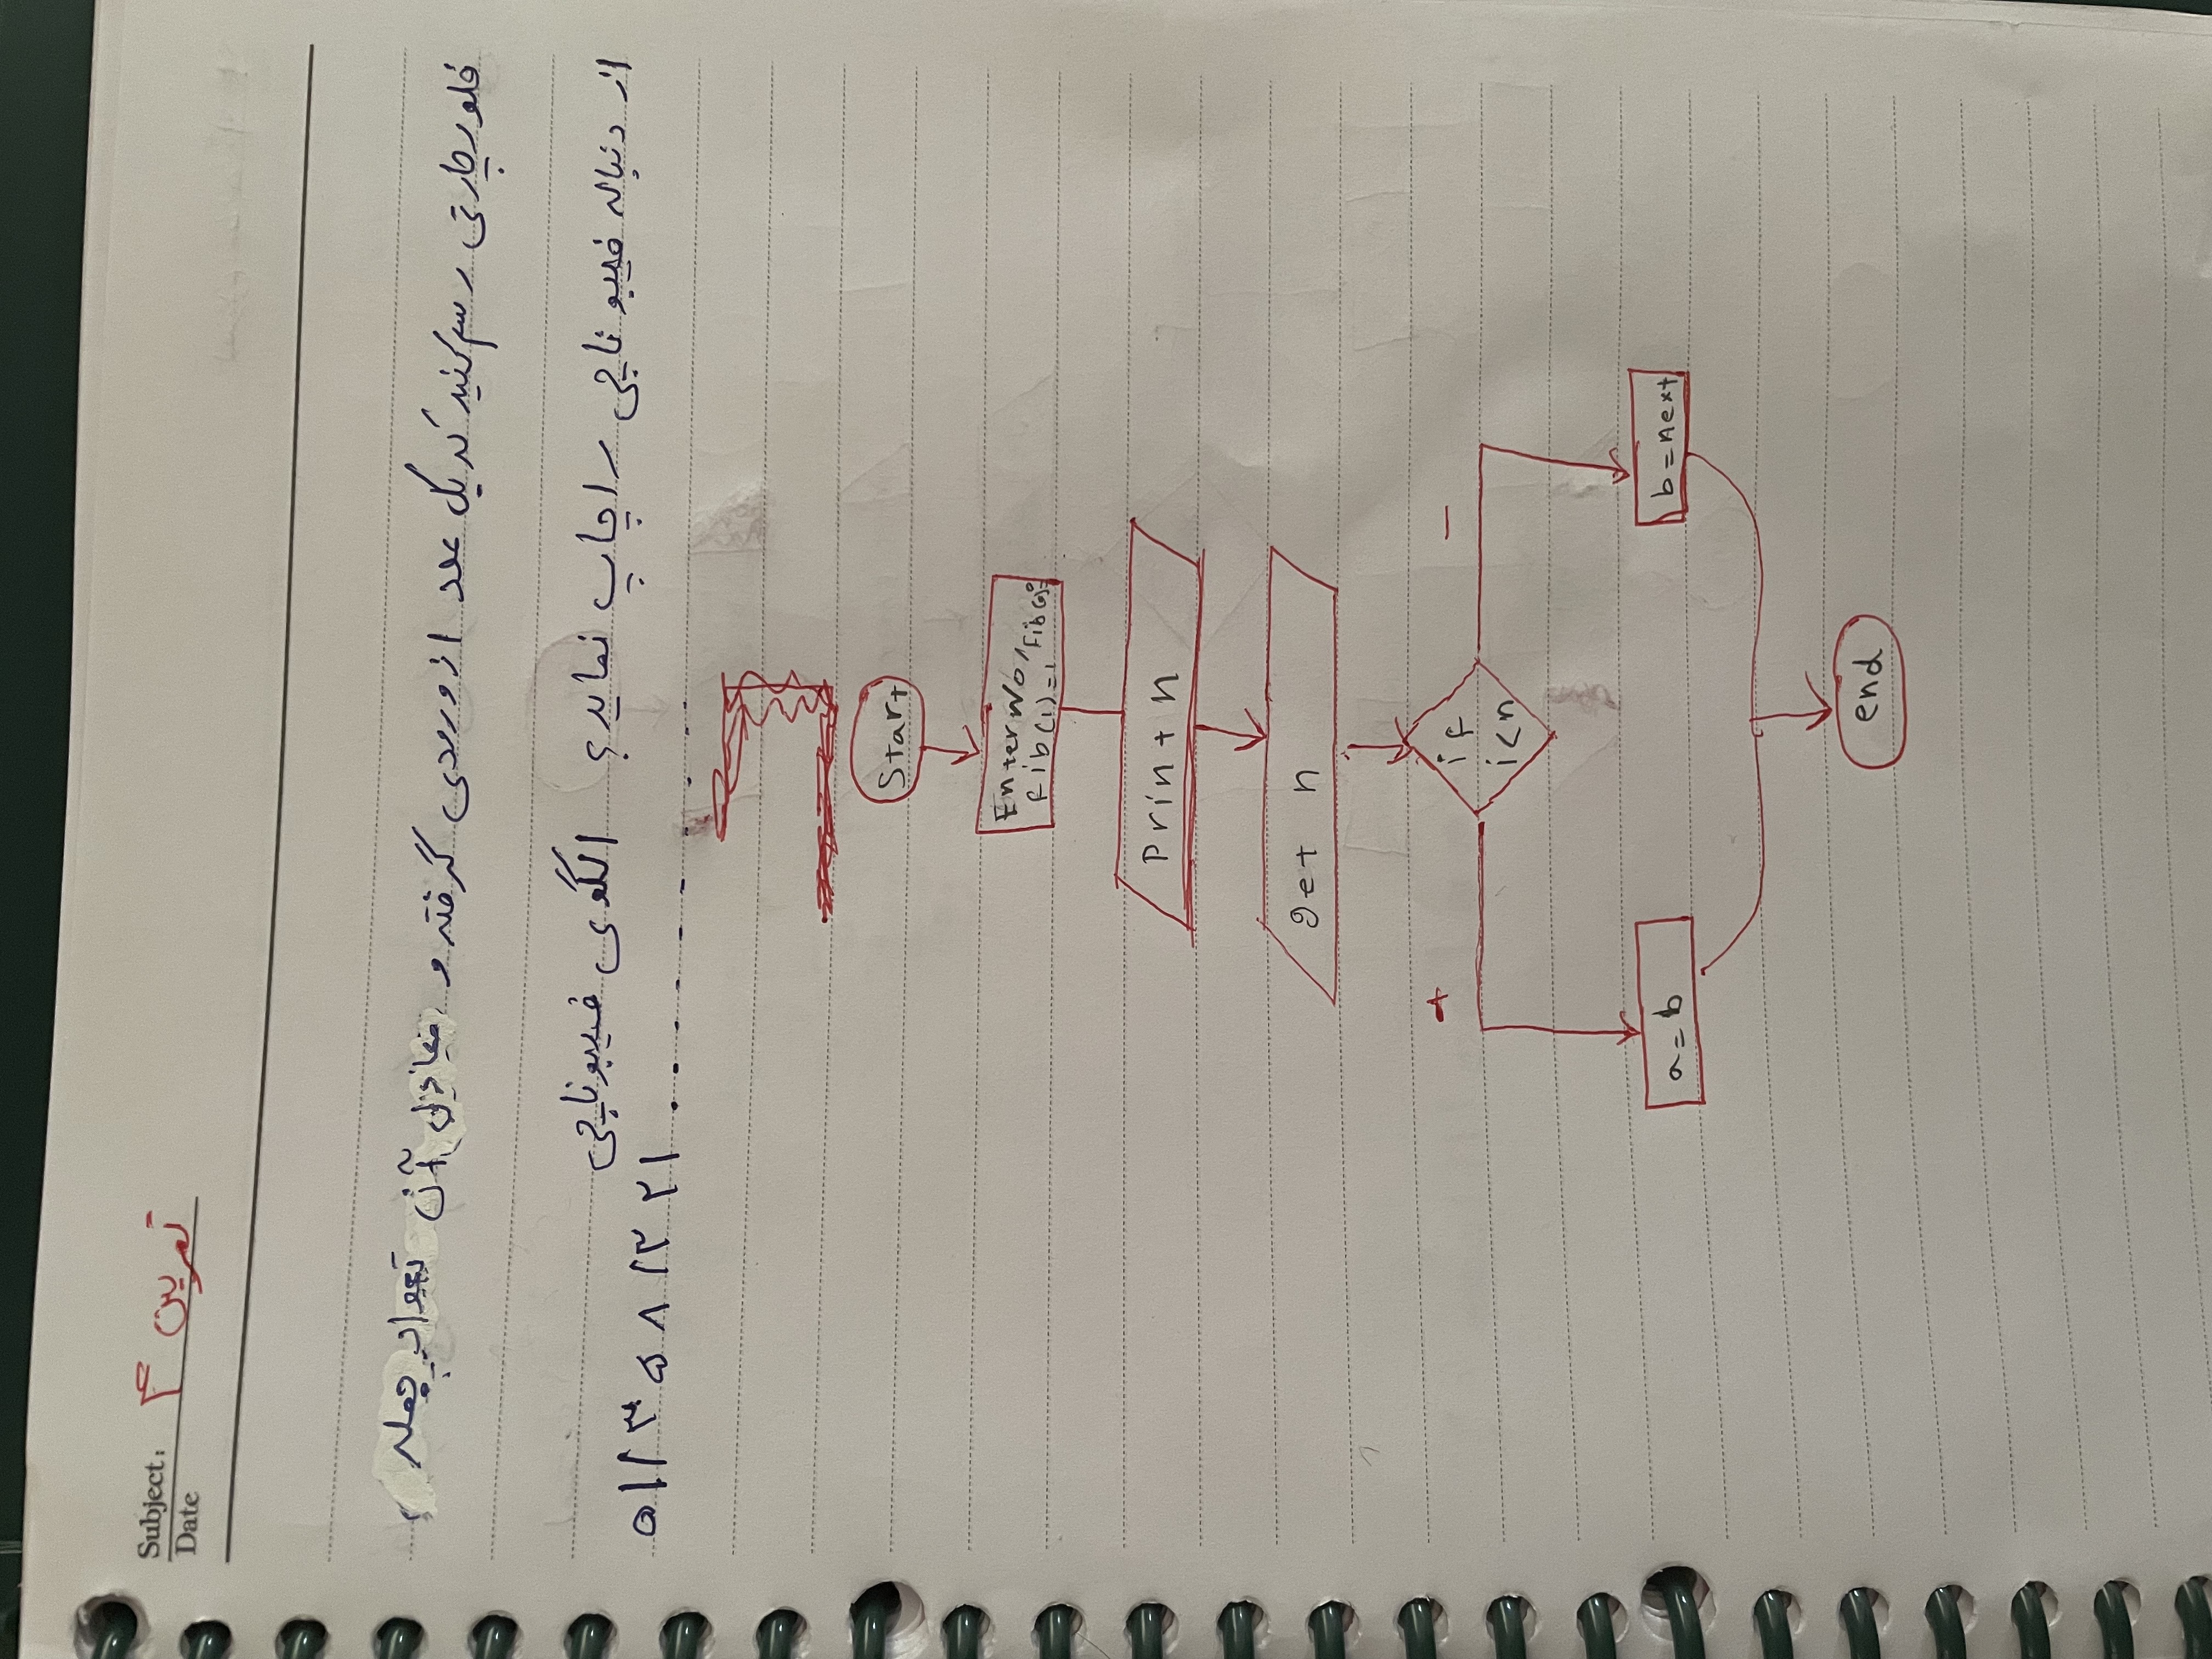 Subject: تمرین ۴
Date
فلورچارتی رسم کنید که یک عدد از ورودی گرفته و معادل آن تعداد جمله
از دنباله فیبو ناچی را چاپ نماید؟ الگوی فیبوناچی
۰ ۱ ۱ ۲ ۳ ۵ ۸ ۱۳ ۲۱ . . . . . . . . . .
Start
Enter No, Fib(0)=0
fib(1)=1
Print n
get n
+ if -
i<n
a=b b=next
end